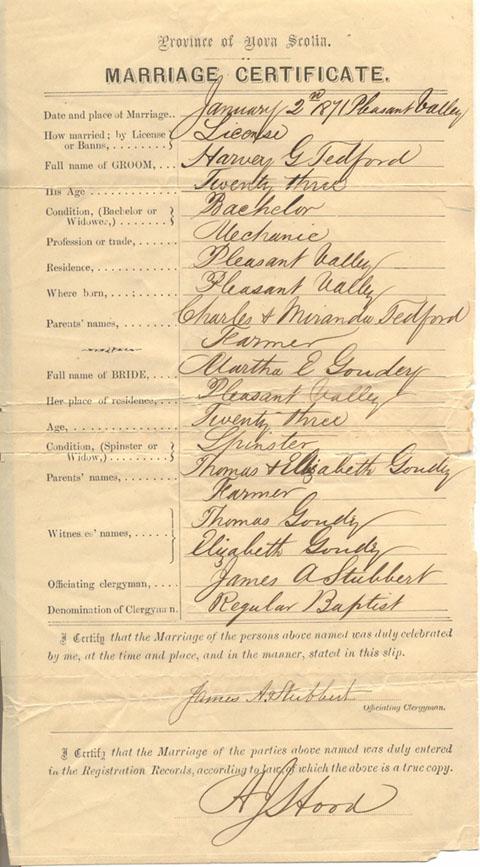 Province of Nova Scotia.
MARRIAGE CERTIFICATE.
Date and place of Marriage.. January 2nd 1871 Pleasant Valley
How married; by License or Banns, ........ License
Full name of GROOM, .... Harvey G Tedford
His Age ............ Twenty three
Condition, (Bachelor or Widower,) ........ Bachelor
Profession or trade, ..... Mechanic
Residence, .......... Pleasant Valley
Where born, ........ Pleasant Valley
Parents' names, ....... Charles & Miranda Tedford
Farmer
Full name of BRIDE, .... Martha E Goudey
Her place of residence, ... Pleasant Valley
Age, ............ Twenty three
Condition, (Spinster or Widow,) ........ Spinster
Parents' names, ....... Thomas & Elizabeth Goudy
Farmer
Witnesses' names, ..... Thomas Goudy
Elizabeth Goudy
Officiating clergyman, .... James A Stubbert
Denomination of Clergyman. Regular Baptist
I Certify that the Marriage of the persons above named was duly celebrated
by me, at the time and place, and in the manner, stated in this slip.
James A. Stubbert
Officiating Clergyman.
I Certify that the Marriage of the parties above named was duly entered
in the Registration Records, according to law, of which the above is a true copy.
A J Hood